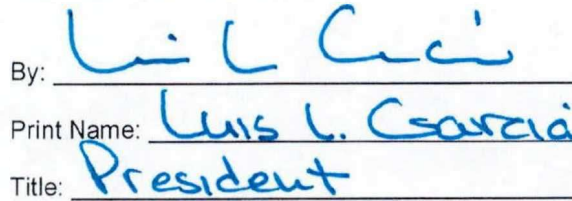 By: Luis L Garcia
Print Name: Luis L. Garcia
Title: President